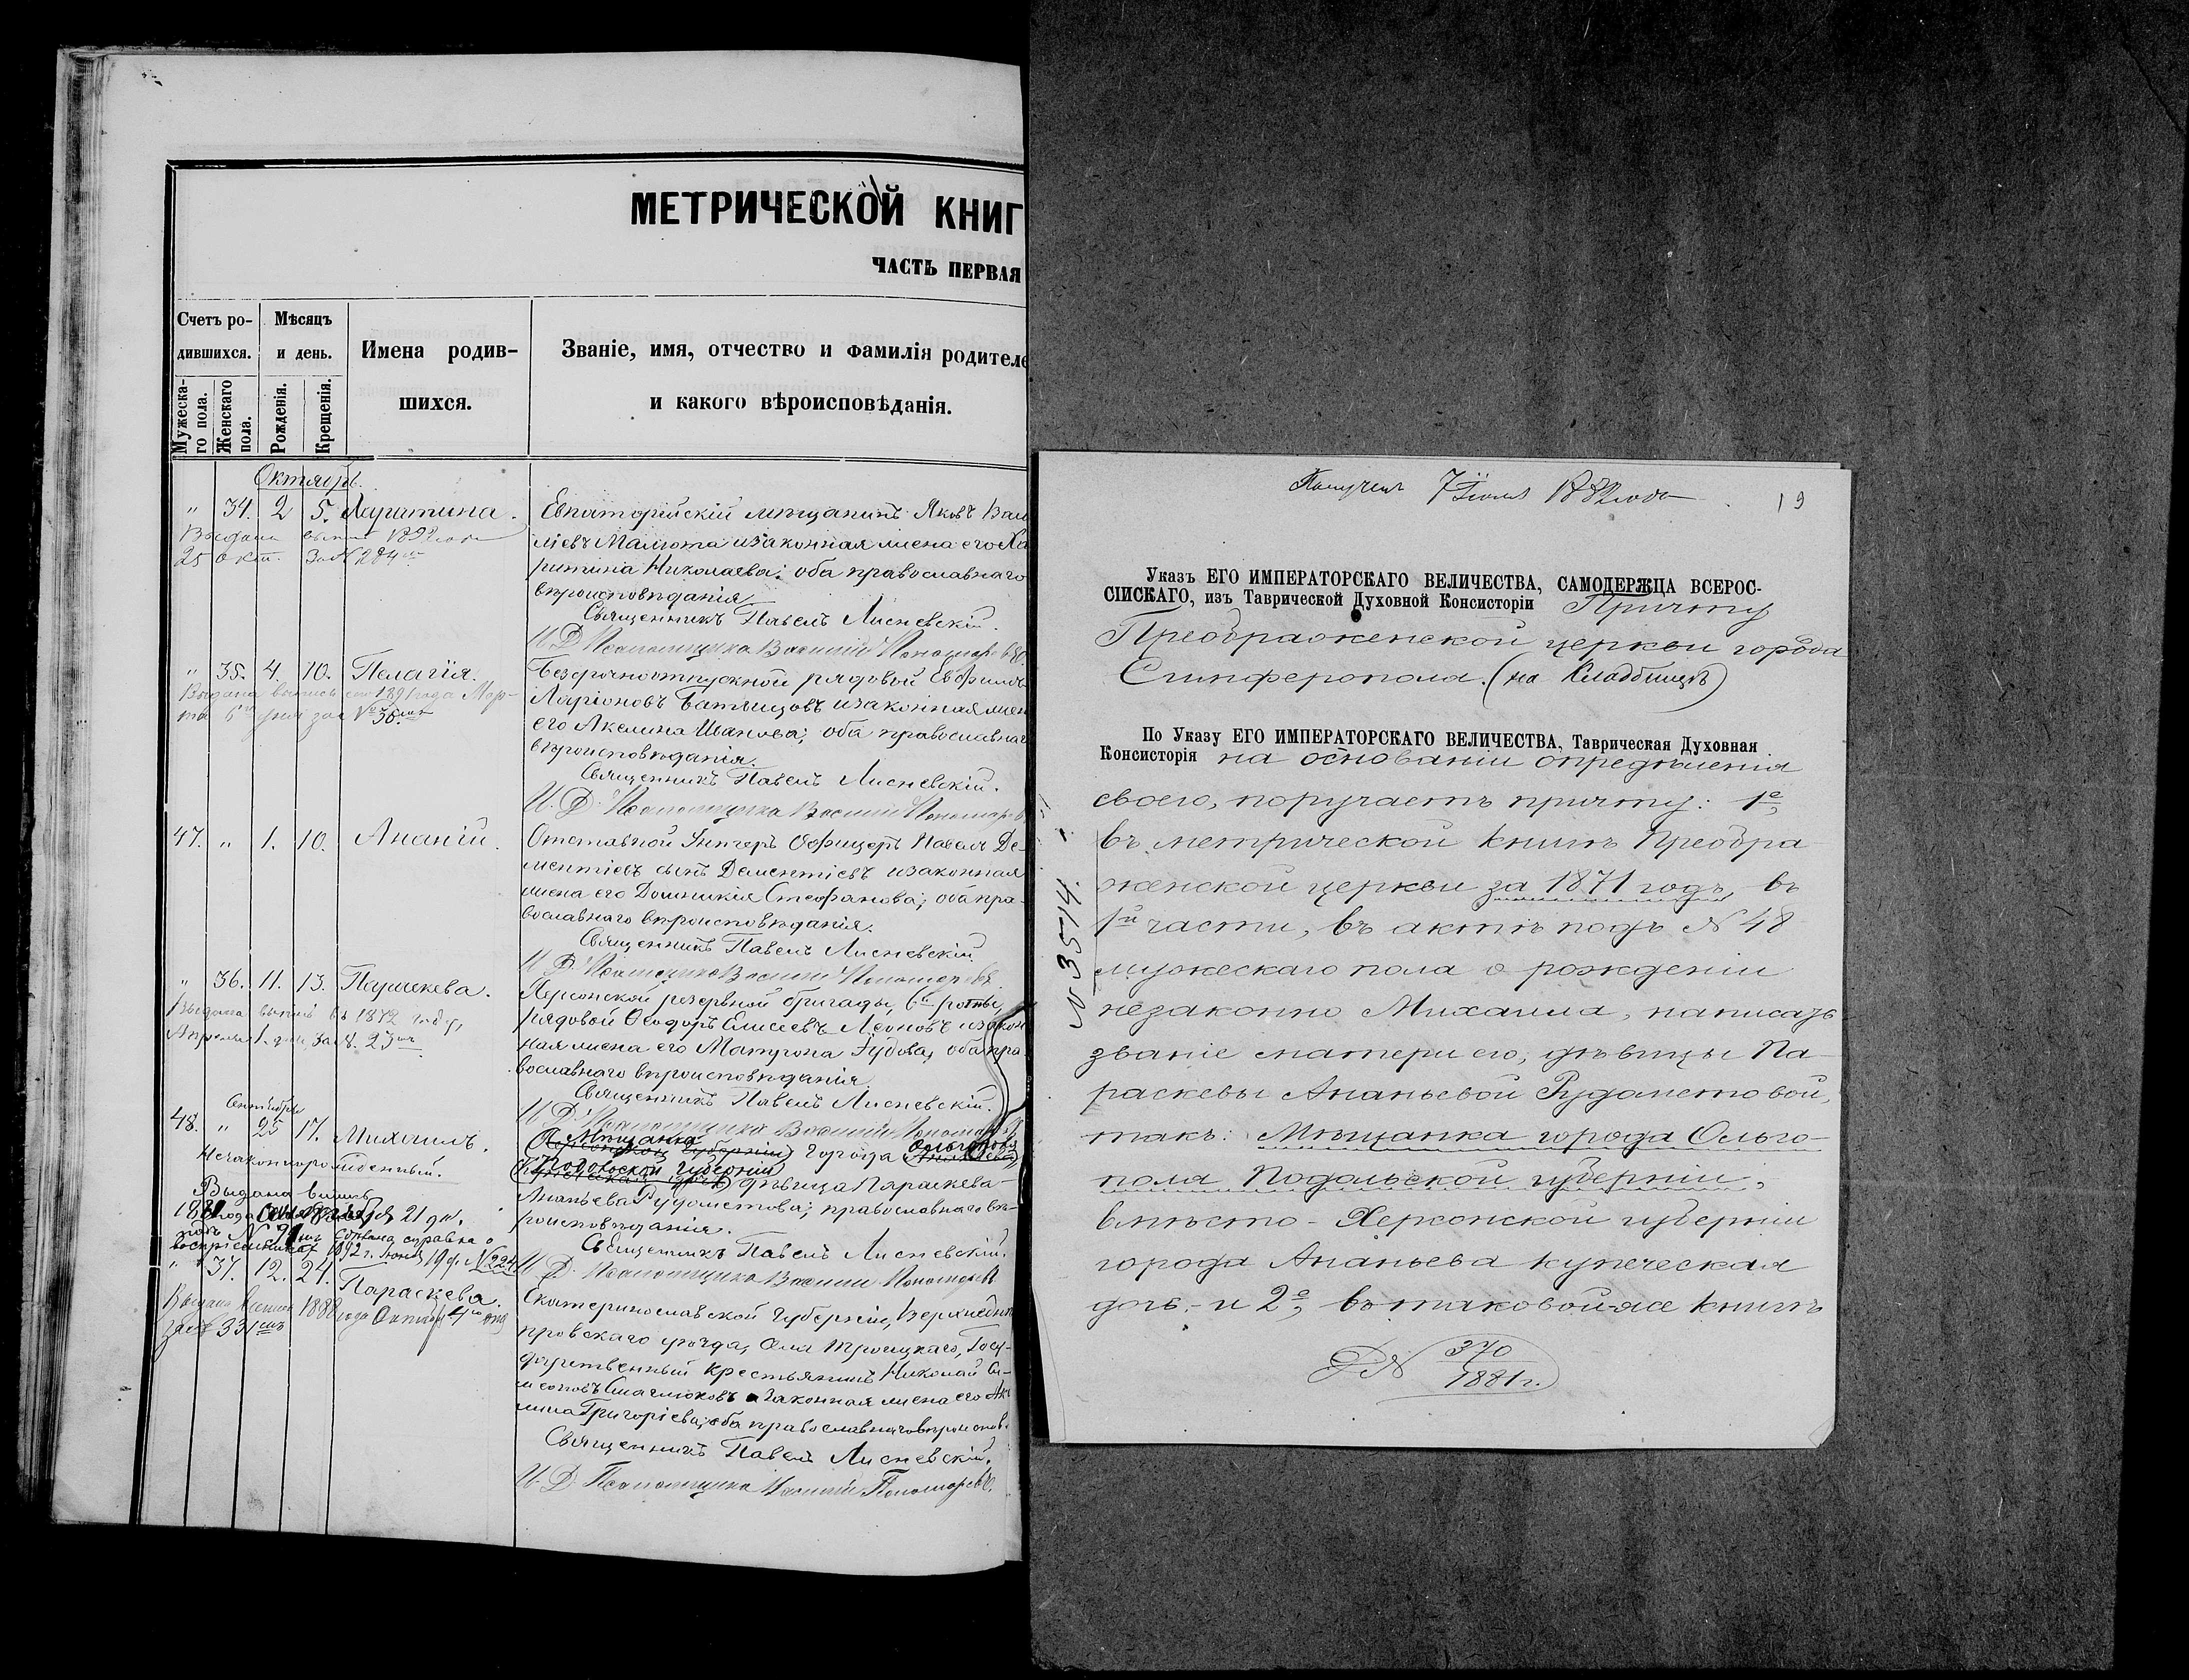 МЕТРИЧЕСКОЙ КНИГ
ЧАСТЬ ПЕРВАЯ
Счетъ ро-
дившихся.
Мужеска-
го пола.
Женскаго
пола.
Мѣсяцъ
и день.
Рожденія.
Крещенія.
Имена родив-
шихся.
Званіе, имя, отчество и фамилія родителе
и какого вѣроисповѣданія.
Октябрь.
" 34. 2 5. Харитина.
Выдана выпись 1892 года
25 окт. за № 284
Евпаторійскій мѣщанинъ Яковъ Васи
ліевъ Малюта и законная жена его Ха
ритина Николаева; оба православнаго
вѣроисповѣданія
Священникъ Павелъ Лисневскій.
И. Д. Псаломщика Василій Пономаревъ
" 35. 4. 10. Пелагія.
Выдана выпись 1891 года Мар-
та 6 дня за № 36
Безсрочноотпускной рядовой Евфимъ
Ларіоновъ и законная жен
его Акелина Иванова; оба православнаг
вѣроисповѣданія.
Священникъ Павелъ Лисневскій.
И. Д. Псаломщика Василій Пономаревъ
47. " 1. 10. Ананій.
Отставной Унтеръ Офицеръ Павелъ Де-
ментіевъ сынъ Дементіевъ и законная
жена его Домникія Стефанова; оба пра-
вославнаго вѣроисповѣданія.
Священникъ Павелъ Лисневскій
И. Д. Псаломщика Василій Пономаревъ
" 36. 11. 13. Параскева.
Выдана выпись въ 1872 году,
Апреля 1 дня за № 23
Херсонской резервной бригады, 6й роты,
рядовой Ѳеодоръ Елисеевъ Леоновъ и закон
ная жена его Матрона оба пра-
вославнаго вѣроисповѣданія
Священникъ Павелъ Лисневскій.
И. Д. Псаломщика Василій Пономаревъ
Сентября
48. " 25 17. Михаилъ.
Незаконнорожденный.
Выдана выпись
21 дн.
справка о
1892 г. Июня 19 д. № 224
Мѣщанка
Херсонской Губерніи города Ольгополя
Подольской губерніи
дѣвица Параскева
Ананьева Рудометова; православнаго вѣ-
роисповѣданія.
Священникъ Павелъ Лисневскій.
И. Д. Псаломщика Василій Пономаревъ
" 37. 12. 24. Параскева.
Выдана выпись 1888 года Октября
за № 331
Екатеринославской Губерніи, Верхнеднѣ
провскаго уѣзда, села Троицкаго, Госу-
дарственный крестьянинъ Николай Си-
меоновъ и законная жена его Аки
лина Григоріева; оба православнаго вѣроиспов.
Священникъ Павелъ Лисневскій.
И. Д. Псаломщика Василій Пономаревъ.
Полученъ 7 Іюля 1882 года
19
Указъ ЕГО ИМПЕРАТОРСКАГО ВЕЛИЧЕСТВА, САМОДЕРЖЦА ВСЕРОС-
СІЙСКАГО, изъ Таврической Духовной Консисторіи Причту
Преображенской церкви города
Симферополя. (на Кладбищѣ)
По Указу ЕГО ИМПЕРАТОРСКАГО ВЕЛИЧЕСТВА, Таврическая Духовная
Консисторія на основаніи опредѣленія
своего, поручаетъ причту: 1е,
въ метрической книгѣ Преобра
женской церкви за 1871 годъ, въ
1й части, въ актѣ подъ № 48
мужескаго пола о рожденіи
незаконно Михаила, написать
званіе матери его, дѣвицы Па-
раскевы Ананьевой Рудометовой,
такъ: Мѣщанка города Ольго-
поля Подольской губерніи,
вмѣсто - Херсонской губерніи
города Ананьева купеческая
дочь, - и 2е, въ таковой-же книгѣ
№ 3514.
Р № 370
1881 г.